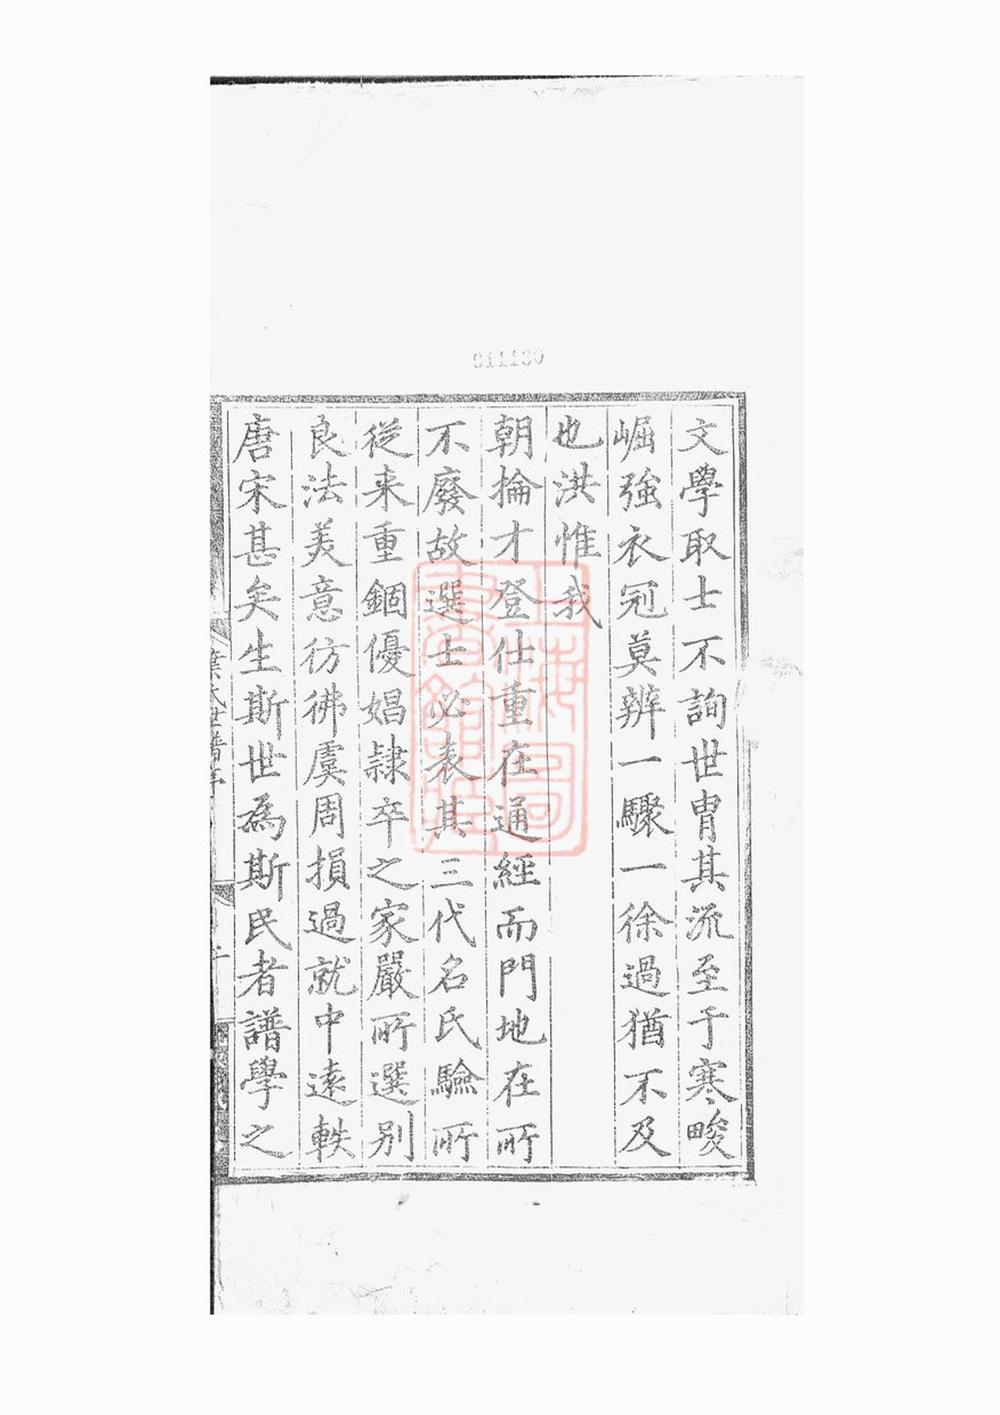 011130
文學取士不詢世冑其流至于寒畯
崛強衣冠莫辨一驟一徐過猶不及
也洪惟我
朝掄才登仕重在通經而門地在所
不廢故選士必表其三代名氏驗所
從来重錮優娼隷卒之家嚴所選別
良法美意彷彿虞周損過就中遠軼
唐宋甚矣生斯世為斯民者譜學之
葉氏世譜序